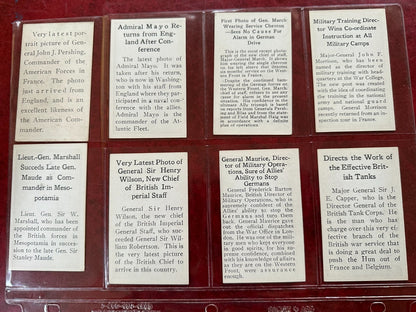 Very latest por-
trait picture of Gen-
eral John J. Pershing,
Commander of the
American Forces in
France. The photo
just arrived from
England, and is an
excellent likeness of
the American Com-
mander.
Admiral Mayo Re-
turns from Eng-
land After Con-
ference
The latest photo of
Admiral Mayo. It was
taken after his return,
who is now in Washing-
ton with his staff from
England where they par-
ticipated in a naval con-
ference with the allies.
Admiral Mayo is the
commander of the At-
lantic Fleet.
First Photo of Gen. March
Wearing Service Chevron
—Sees No Cause For
Alarm in German
Drive
This is the most recent photo-
graph of the new chief of staff,
Major-General March. It shows
him wearing his
months
ern Front in France.
Despite the continued batter-
ing of the German forces on
the Western Front, Gen. March,
chief of staff, refuses to see any
cause for alarm in the present
situation. His confidence in the
ultimate Ally triumph is based
upon reports from Generals Persh-
ing and Bliss and from the state-
ment of Field Marshal Haig was
received here
Military Training Direc-
tor Wins Co-ordinate
Instruction at All
Military Camps
Major-General John F.
Morrison, who has been
selected as director of
military training with head-
quarters at the War College.
The new post was created
with the idea of co-ordinating
the training in the national
army and national guard
camps. General Morrison
recently returned from an in-
spection tour in France.
Lieut.-Gen. Marshall
Succeeds Late Gen.
Maude as Com-
mander in Meso-
potamia
Lieut. Gen Sir W. R.
Marshall, who has been
appointed commander of the
British forces in
Mesopotamia in succes-
sion to the late Gen. Sir
Stanley Maude.
Very Latest Photo of
General Sir Henry
Wilson, New Chief
of British Im-
perial Staff
General Sir Henry
Wilson, the new chief
of the British Imperial
General Staff, who suc-
ceeded General Sir Wil-
liam Robertson. This is
the very latest picture
of the British Chief to
arrive in this country.
General Maurice, Director
of Military Opera-
tions, Sure of Allies'
Ability to Stop
Germans
General Frederick Barton
Maurice, British Director of
Military Operations, who is
extremely confident of the
Allies' ability to stop the
Germans and turn them
back. General Maurice gave
out the official dispatches
from the War Office in Lon-
don. He was one of the mili-
tary men who kept everyone
in good spirits, for his su-
preme confidence, combined
with his knowledge of affairs
as they are on the Western
Front, were assurance
enough.
Directs the Work of
the Effective Brit-
ish Tanks
Major General Sir J.
E. Capper, who is the
Director General of the
British Tank Corps. He
is the man who has
charge over this very ef-
fective branch of the
British war service that
is doing a great deal to
push the Hun out of
France and Belgium.